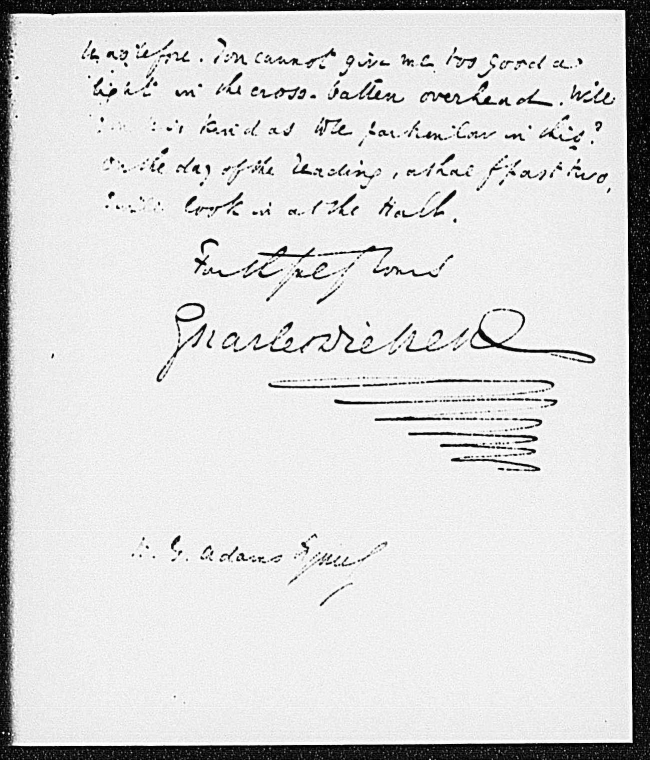 as before. You cannot give me too good a
light in the cross-batten overhead. Will
you be so kind as to be particular in this?
On the day of the Reading, at half past two,
I will look in at the Hall.
Faithfully Yours
Charles Dickens
H. G. Adams Esquire